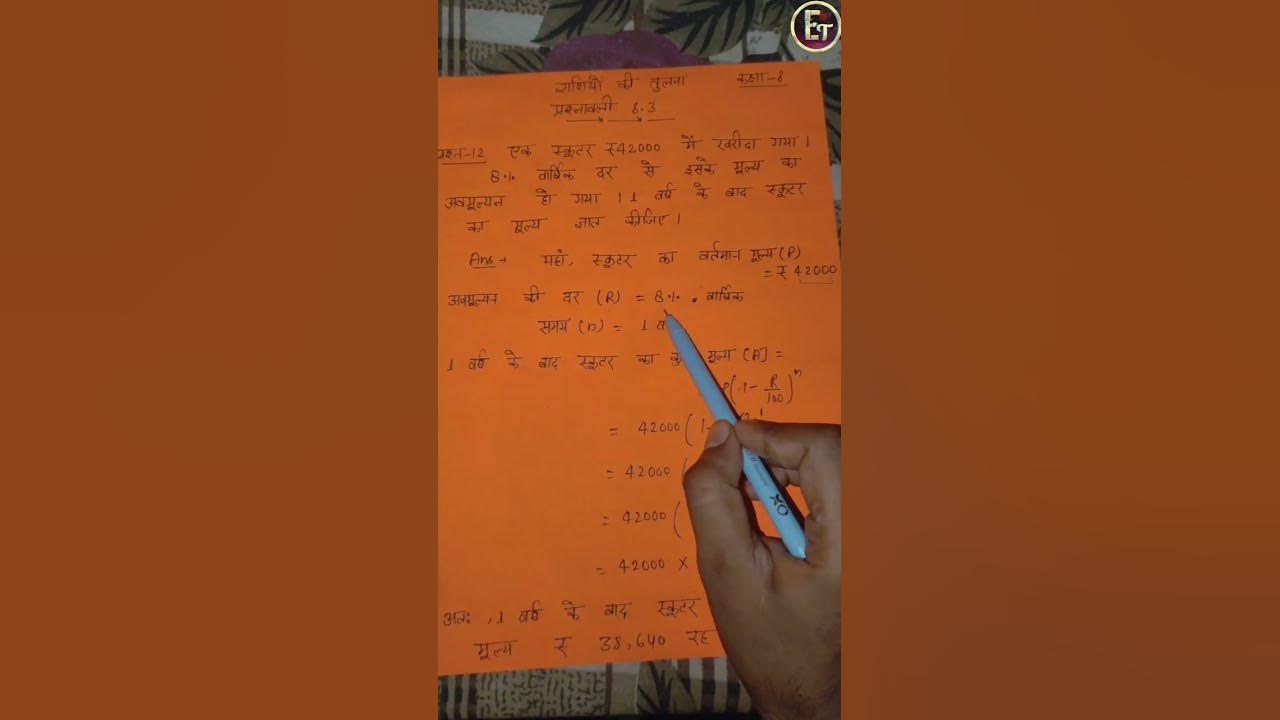 ET
राशियों की तुलना कक्षा-8
प्रश्नावली 8.3
प्रश्न-12 एक स्कूटर ₹42000 में खरीदा गया।
8% वार्षिक दर से इसके मूल्य का
अवमूल्यन हो गया। 1 वर्ष के बाद स्कूटर
का मूल्य ज्ञात कीजिए।
Ans → यहाँ, स्कूटर का वर्तमान मूल्य (P)
= ₹42000
अवमूल्यन की दर (R) = 8% वार्षिक
समय (n) = 1
1 वर्ष के बाद स्कूटर का मूल्य (A) =
(1 - R/100)^n
= 42000 (1-
= 42000 (
= 42000 (
= 42000 ×
अतः, 1 वर्ष के बाद स्कूटर
मूल्य ₹ 38,640 रह